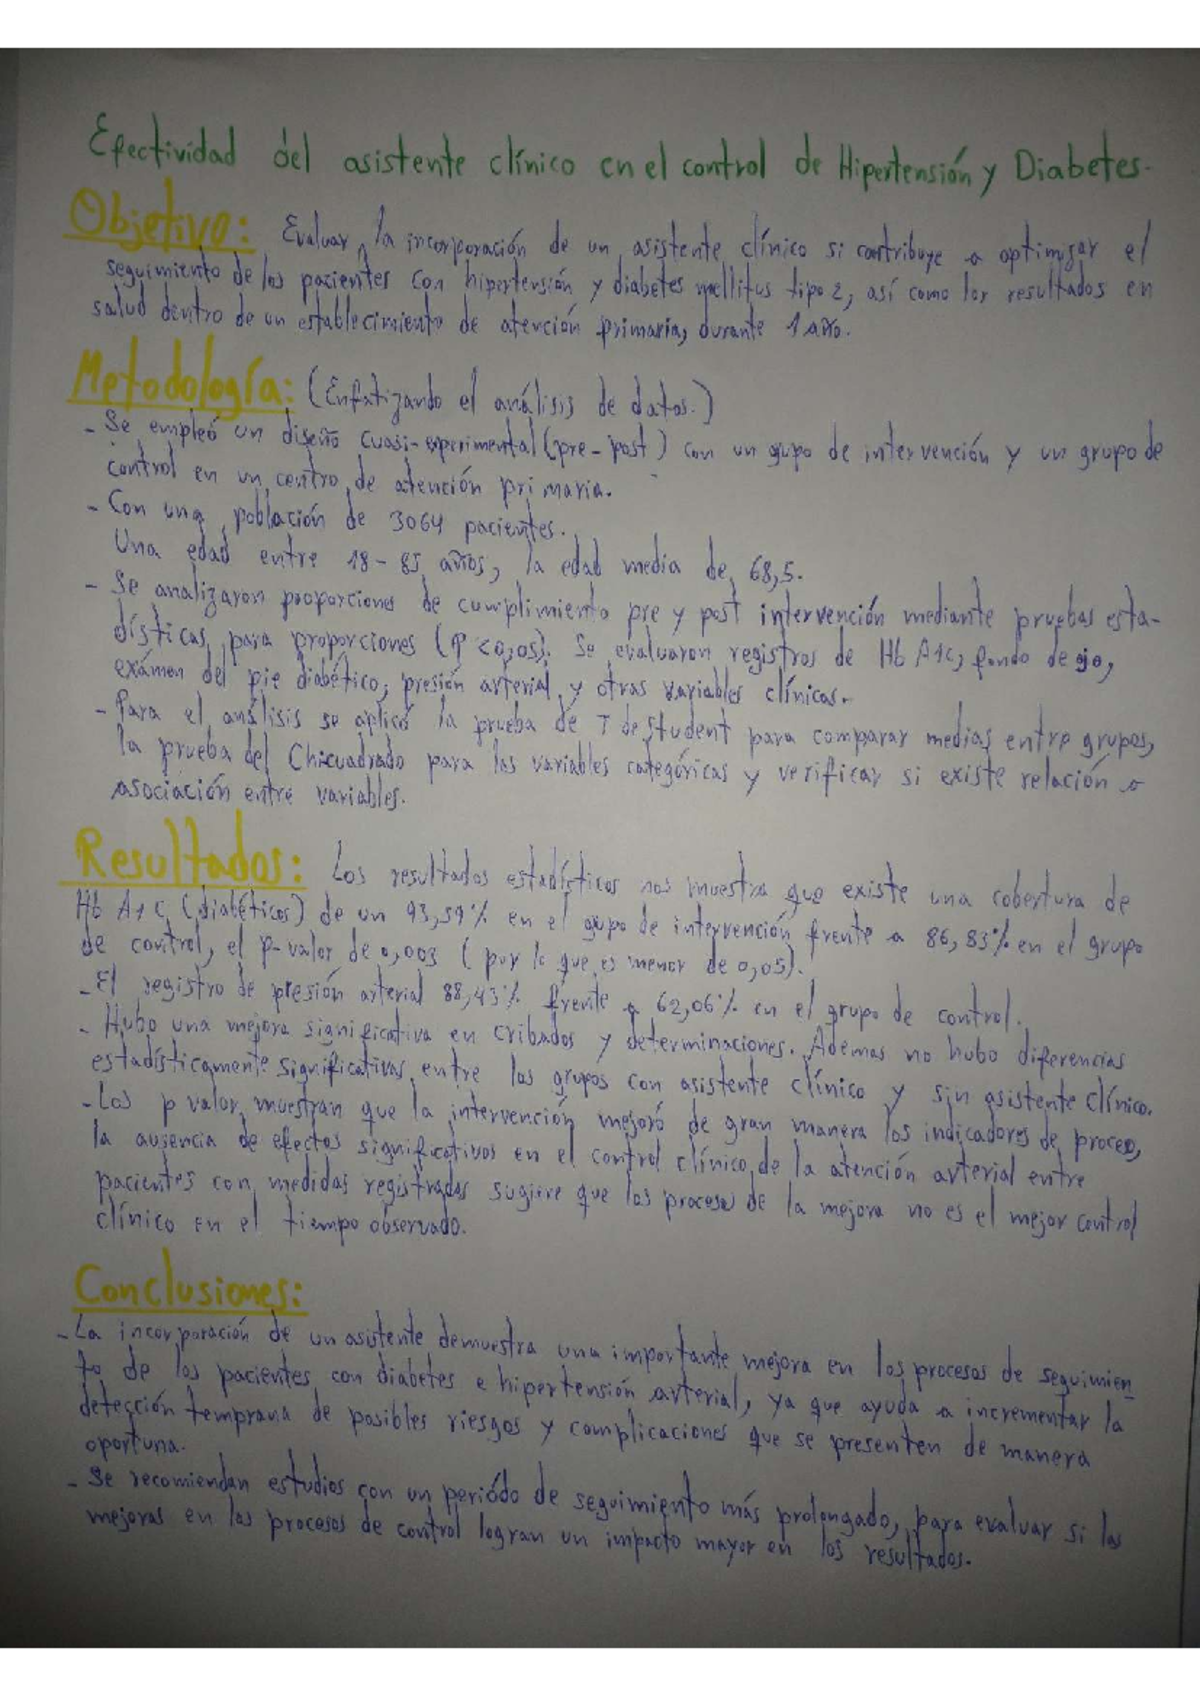 Efectividad del asistente clínico en el control de Hipertensión y Diabetes.
Objetivo: Evaluar, la incorporación de un asistente clínico si contribuye a optimizar el
seguimiento de los pacientes con hipertensión y diabetes mellitus tipo 2, así como los resultados en
salud dentro de un establecimiento de atención primaria, durante 1 año.
Metodología: (Enfatizando el análisis de datos.)
- Se empleó un diseño cuasi-experimental (pre-post) con un grupo de intervención y un grupo de
control en un centro de atención primaria.
- Con una población de 3064 pacientes.
Una edad entre 18-85 años, la edad media de 68,5.
- Se analizaron proporciones de cumplimiento pre y post intervención mediante pruebas esta-
dísticas para proporciones (P <0,05). Se evaluaron registros de Hb A1c, fondo de ojo,
exámen del pie diabético, presión arterial y otras variables clínicas.
- Para el análisis se aplicó la prueba de T de Student para comparar medias entre grupos,
la prueba del Chicuadrado para las variables categóricas y verificar si existe relación o
asociación entre variables.
Resultados: Los resultados estadísticos nos muestra que existe una cobertura de
Hb A1c (diabéticos) de un 93,59% en el grupo de intervención frente a 86,83% en el grupo
de control, el p-valor de 0,003 (por lo que es menor de 0,05).
- El registro de presión arterial 88,43% frente a 62,06% en el grupo de control.
- Hubo una mejora significativa en cribados y determinaciones. Ademas no hubo diferencias
estadísticamente significativas entre los grupos con asistente clínico y sin asistente clínico.
- Los p valor muestran que la intervención mejoró de gran manera los indicadores de proceso,
la ausencia de efectos significativos en el control clínico de la atención arterial entre
pacientes con medidas registradas sugiere que los procesos de la mejora no es el mejor control
clínico en el tiempo observado.
Conclusiones:
- La incorporación de un asistente demuestra una importante mejora en los procesos de seguimien
to de los pacientes con diabetes e hipertensión arterial, ya que ayuda a incrementar la
detección temprana de posibles riesgos y complicaciones que se presenten de manera
oportuna.
- Se recomiendan estudios con un periódo de seguimiento más prolongado, para evaluar si las
mejoras en los procesos de control logran un impacto mayor en los resultados.